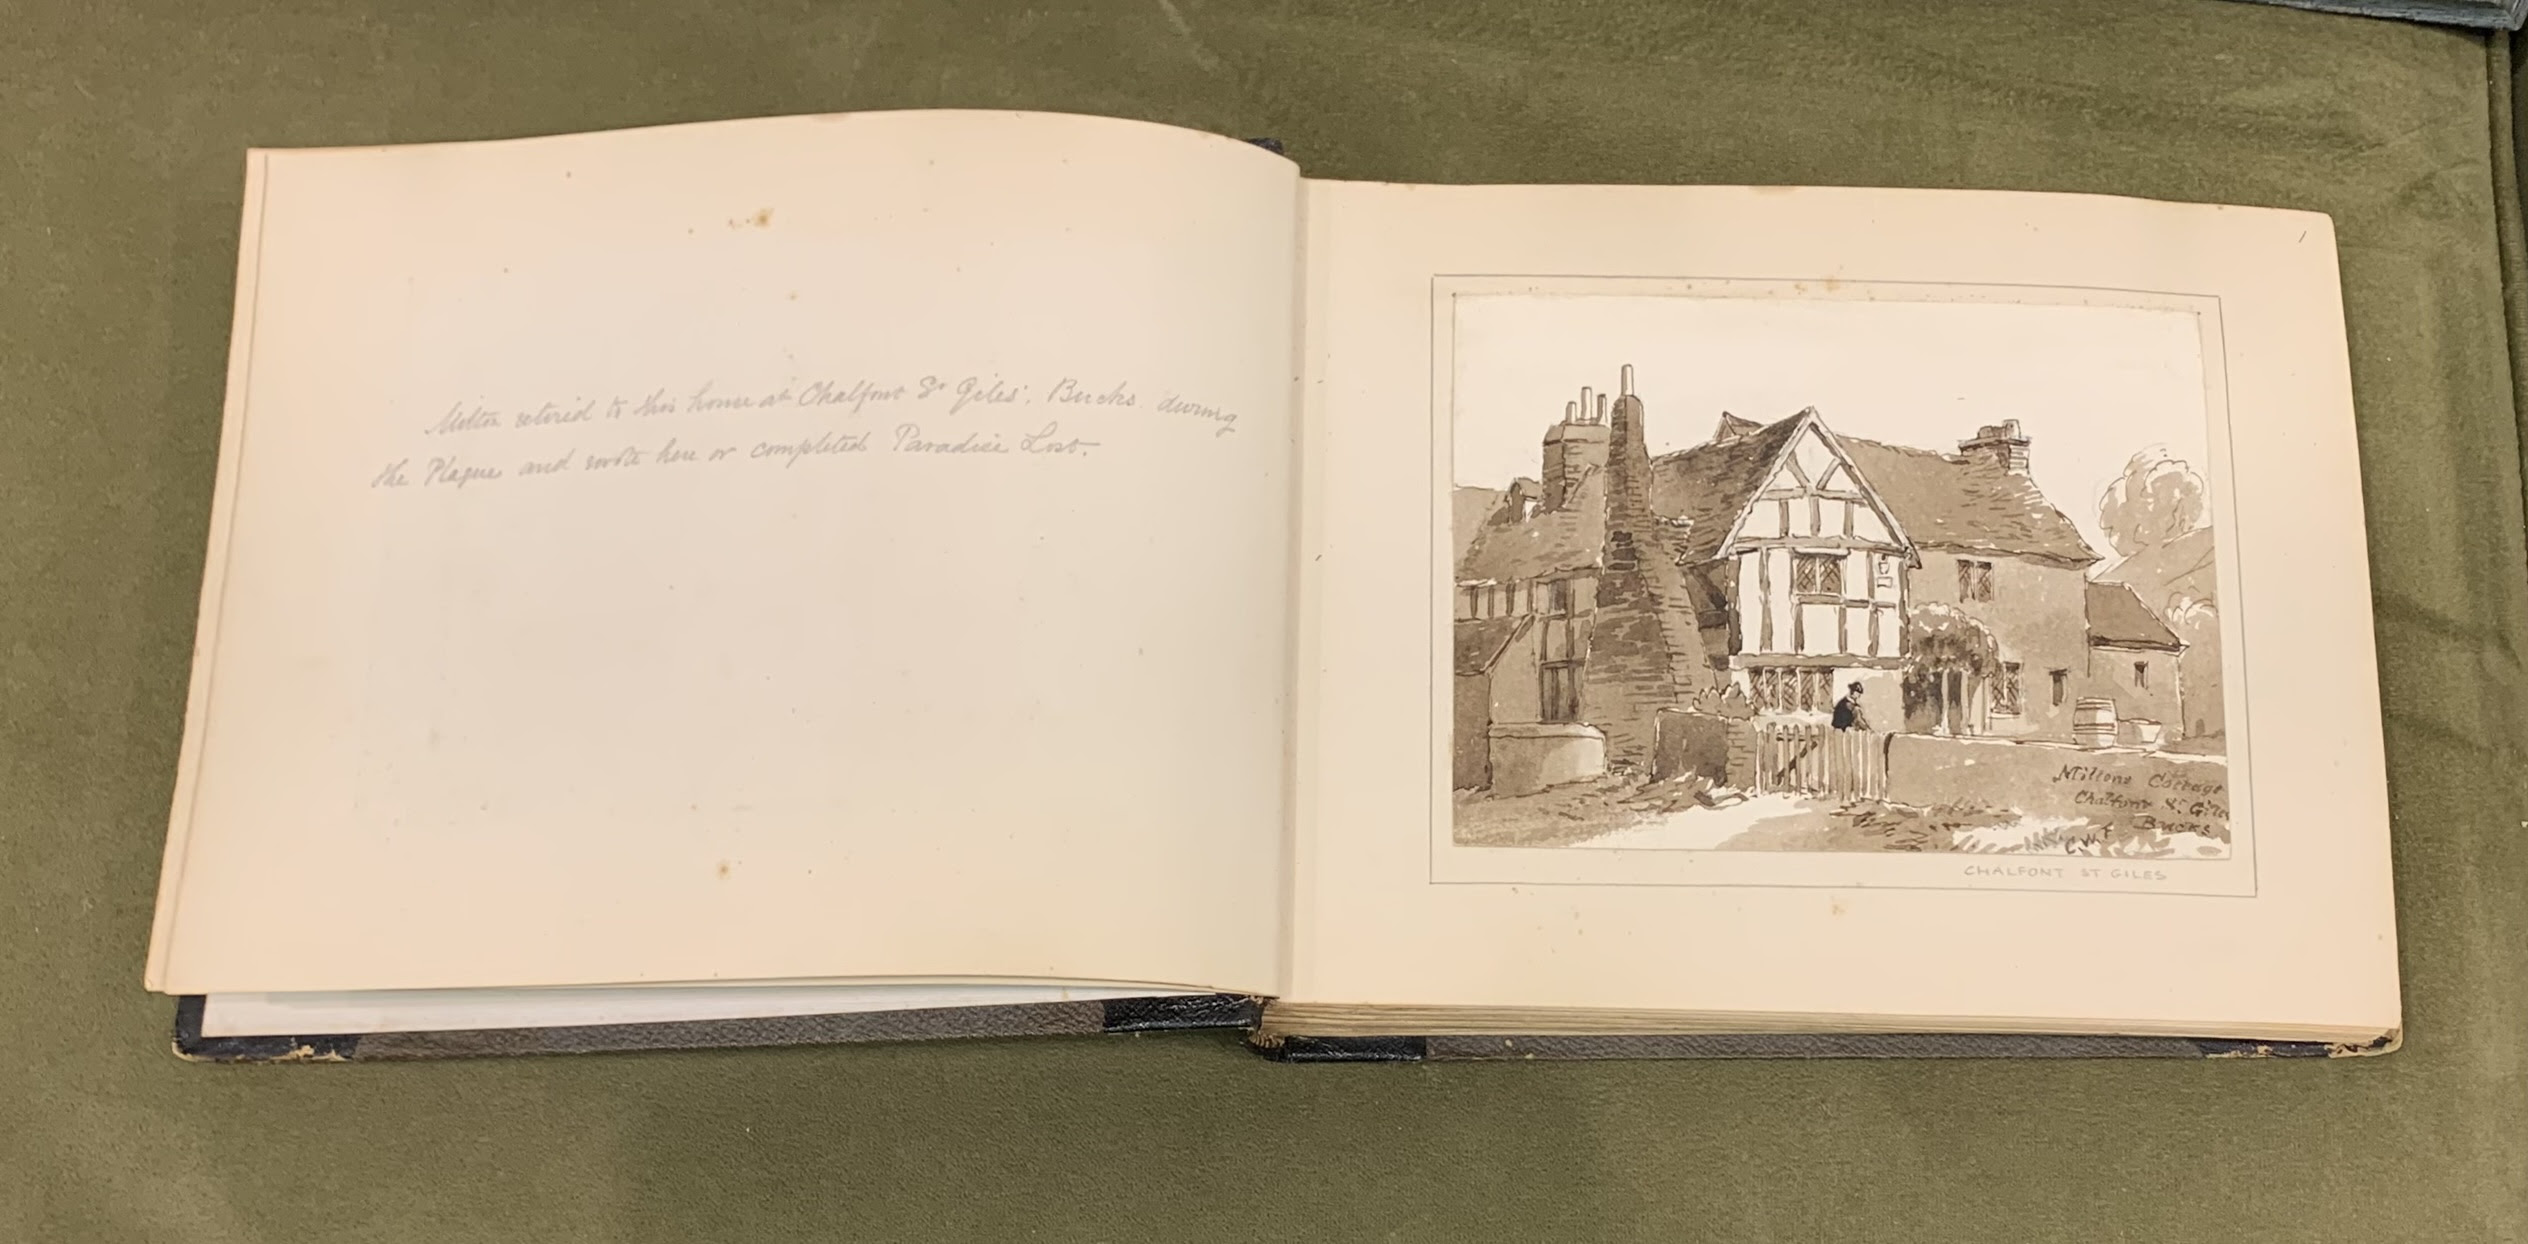 Milton retired to this house at Chalfont St Giles', Bucks. during
the Plague and wrote here or completed Paradise Lost.
1
Miltons Cottage
Chalfont St. Giles
Bucks
C.W.F
CHALFONT ST GILES